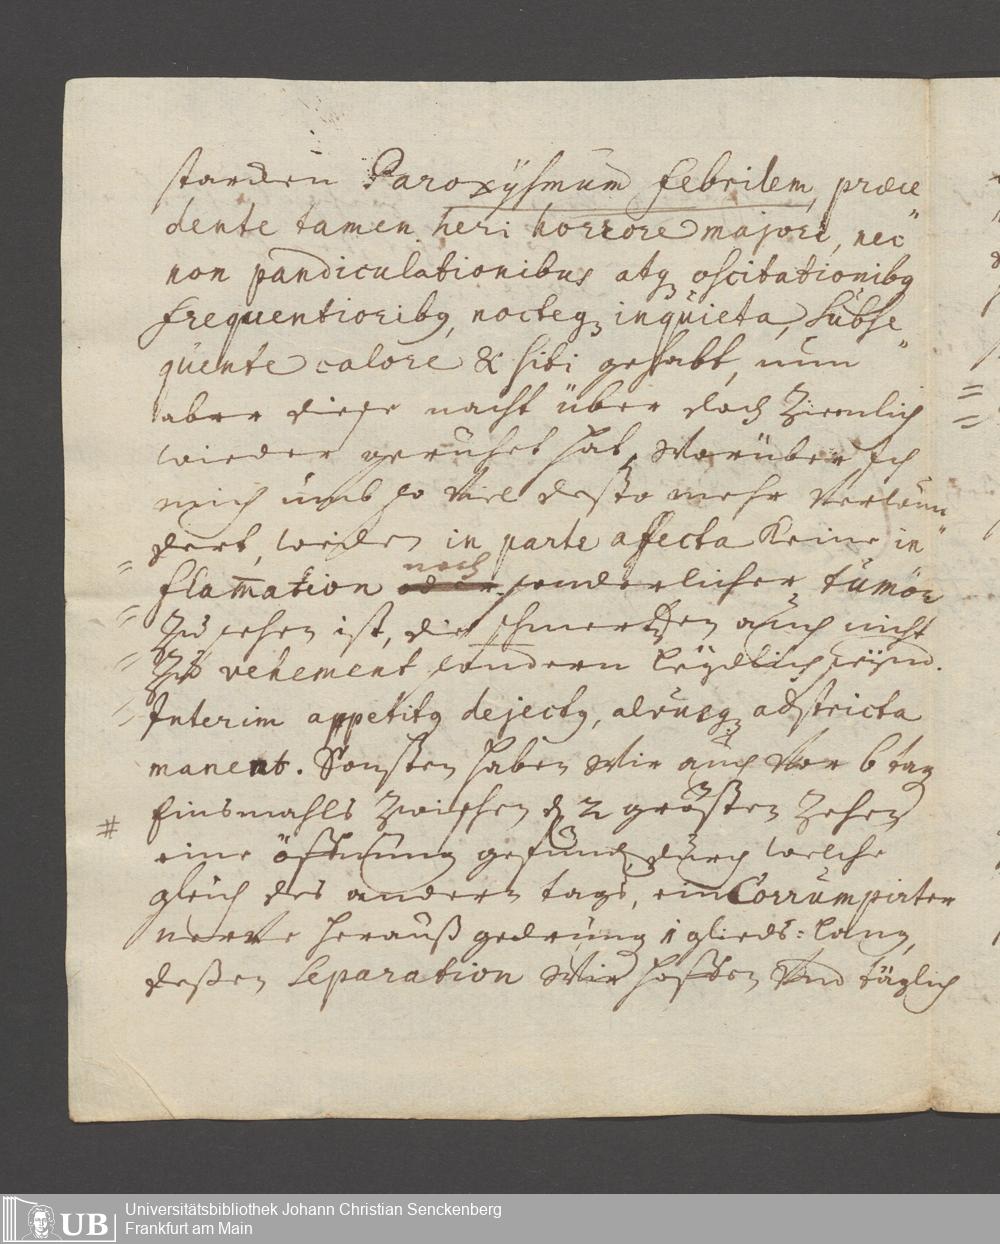 standen Paroxÿsmum febrilem, præce
dente tamen heri horrore majori, nec"
non pandiculationibus atq oscitationibq
frequentioribq, nocteq inquieta, subse
quente calore & siti gehabt, nun"
aber diese nacht über doch Ziemlich
wieder geruhet hat, Worüber Ich
mich umb so viel desto mehr verwun
dert, weilen in parte affecta Keine in"
flam̅ation noch oder sonderlicher tumor
Zu sehen ist, die schmertzen auch nicht
Zu vehement sondern leÿdlich seÿnd.
Interim appetitq dejectq, alvusq adstricta
manent. Sonsten haben Wir auch Vor 6 tag
Einsmahls Zwischen d 2 größten Zehen
# eine öffnung gefund, durch welche
gleich des andern tags, ein Corrumpirter
nerve herauß gedrung 1 glieds: lang,
deßen Separation Wir hofften und täglich
Universitätsbibliothek Johann Christian Senckenberg
Frankfurt am Main
UB